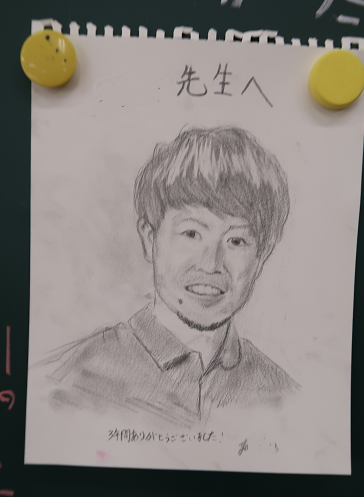 先生へ
3年間ありがとうございました!